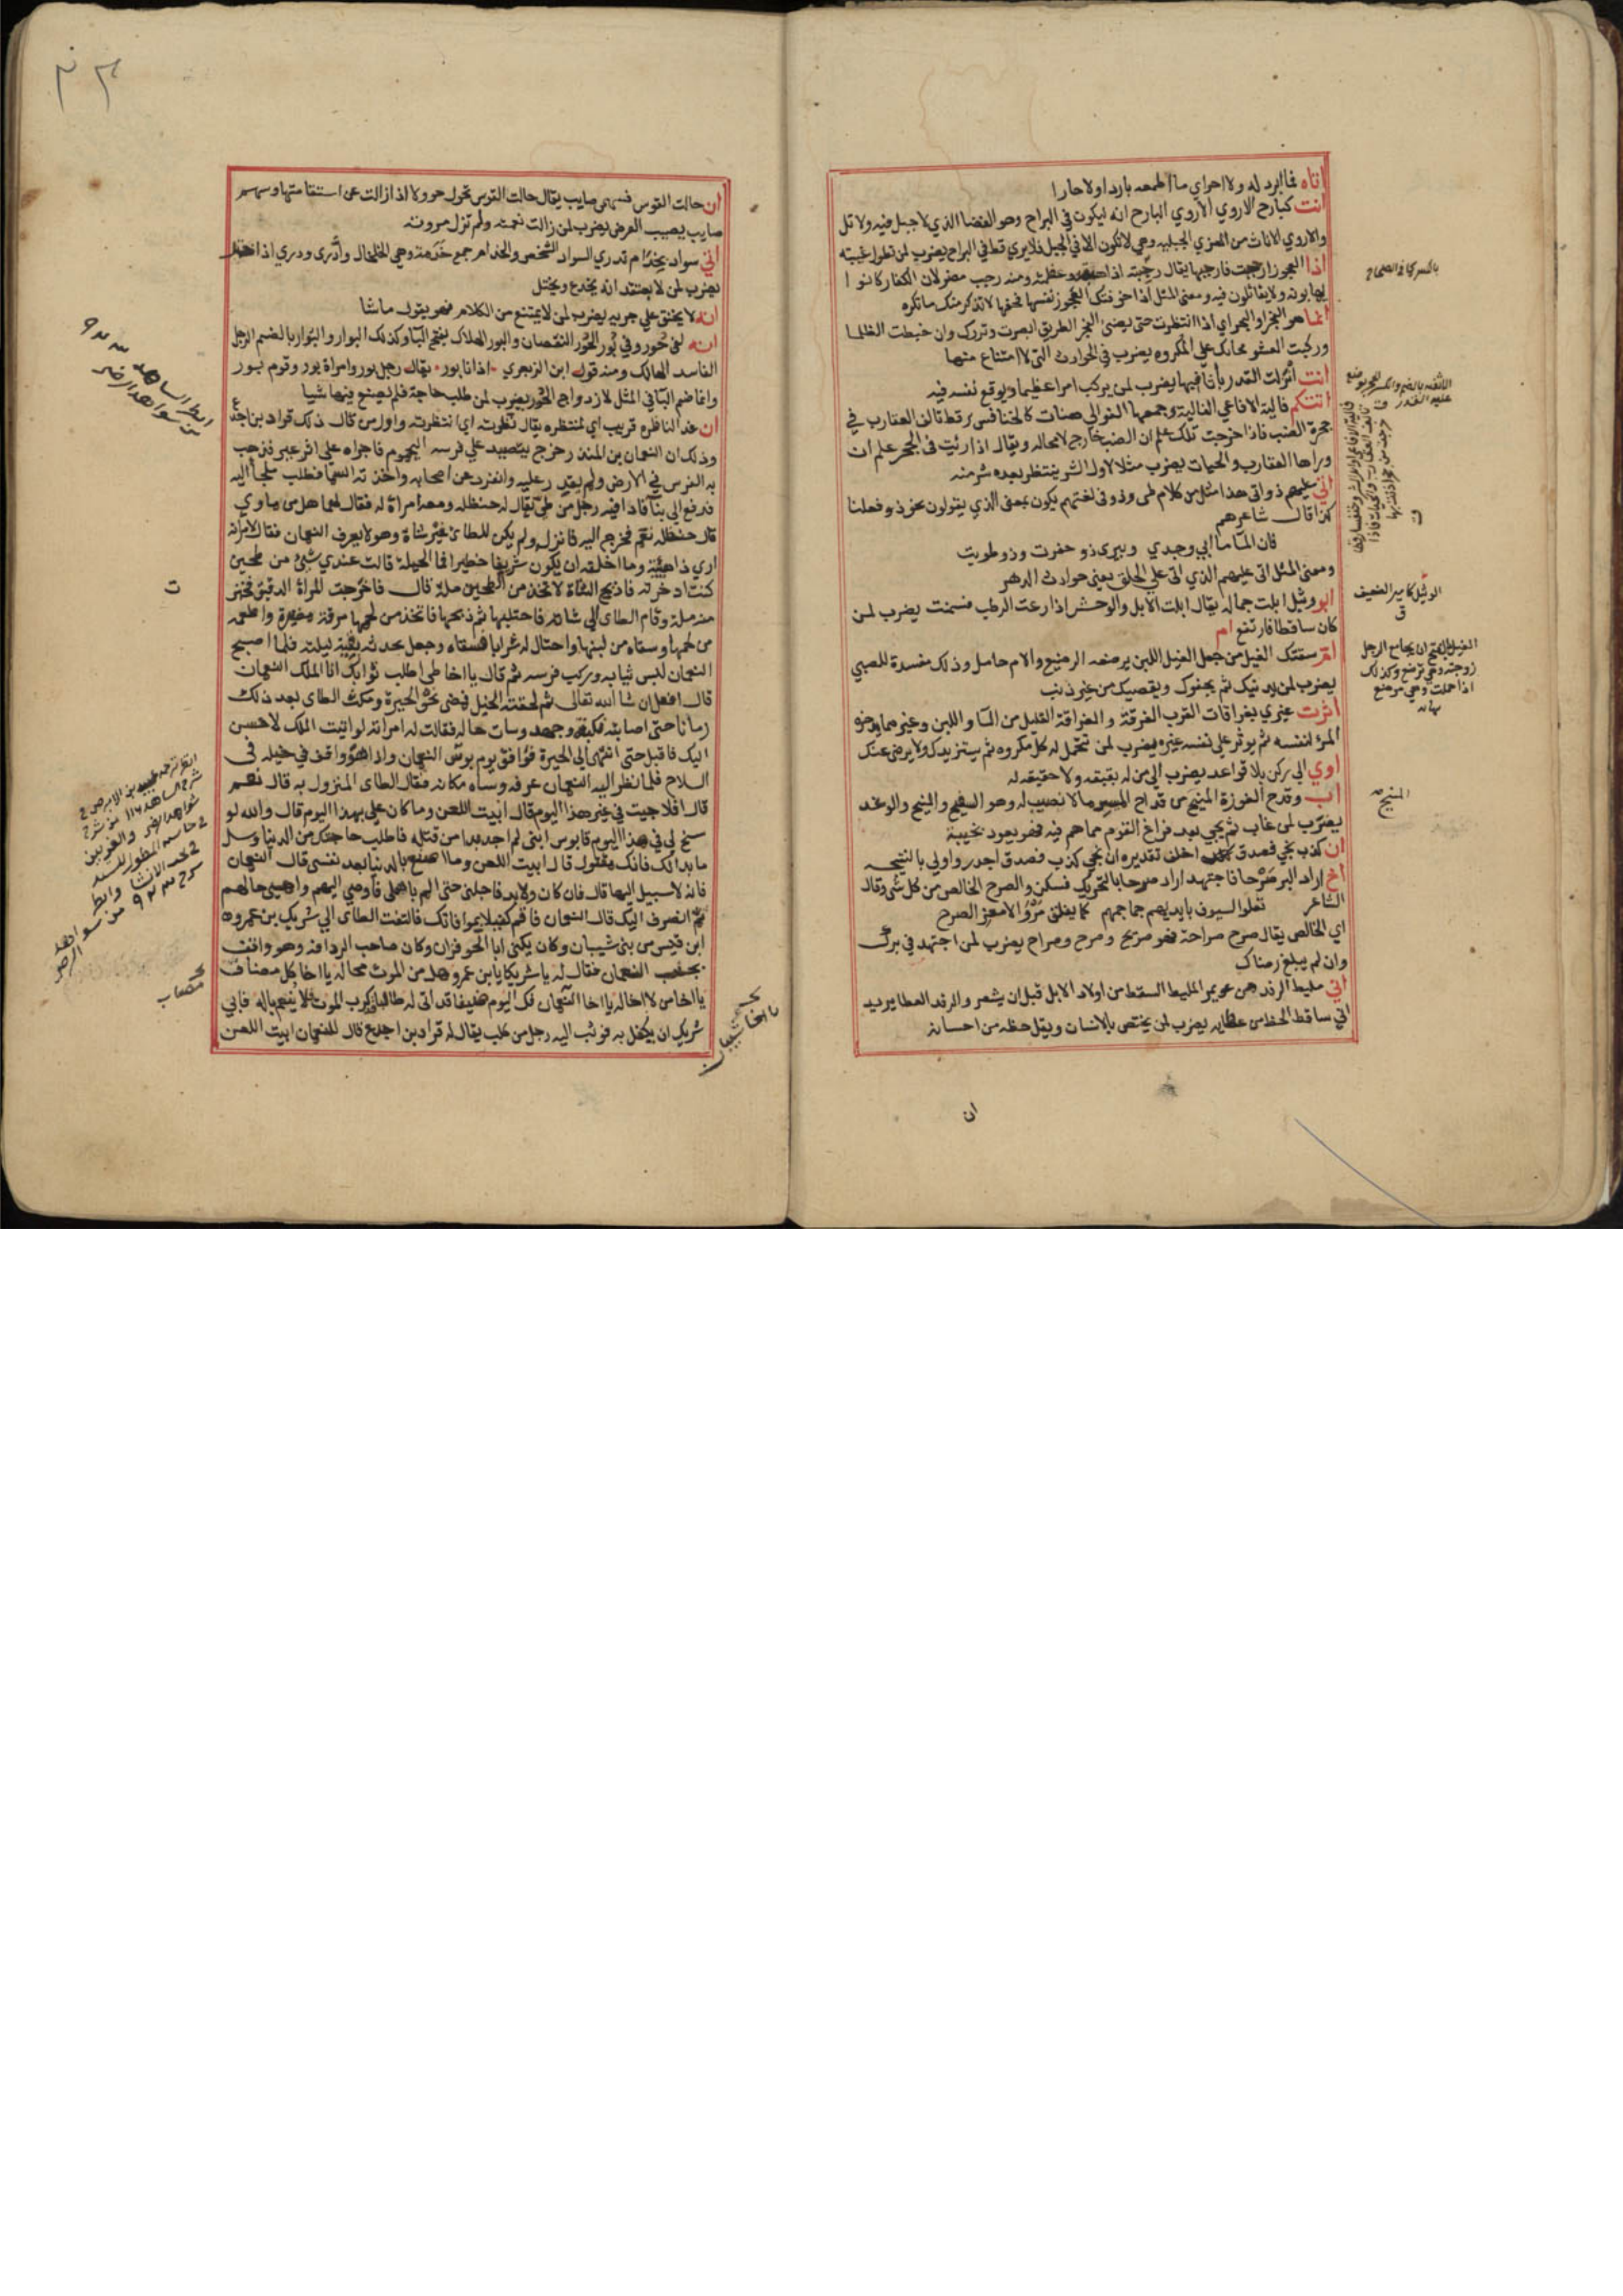 اتاه فما ابرد له ولا احر اي ما اطعمه باردا ولا حارا
انت كبارح الاروي الاروي البارح انه ليكون في البراح وهو الفضا الذي لا جبل فيه ولا تل
والاروي الاناث من المعزي الجبلية وهي لا تكون الا في الجبل فلا يري قط في البراح يضرب لمن تطول غيبته
اذا العجوز ارتجبت فارجبها يقال رجبته اذا وعظمته ومنه رجب مضر لان الكفار كانوا
يهابونه ولا يقاتلون فيه ومعنى المثل اذا خوفتك العجوز نفسها فخفها لا تذكر منك ما تكره
انما هو الفجر او البجر اي اذا انتظرت حتى يضئ الفجر الطريق ابصرت قدرك وان خبطت الظلما
وركبت العشو هجما بك على المكروه يضرب في الحوادث التي لا امتناع منها
انت انزلت القدر باثافيها يضرب لمن يركب امرا عظيما ويوقع نفسه فيه
اتتكم فالية الافاعي الفالية وجمعها الفوالي هنات كالخنافس رقط تالف العقارب في
جحرة الضب فاذا خرجت تلك علم ان الضب خارج لا محالة ويقال اذا رئيت في الجحر علم ان
وراها العقارب والحيات يضرب مثلا لاول الشر ينتظر بعده شر منه
اتي عليهم ذو اتى هذا مثل من كلام طي وذو في لغتهم يكون بمعنى الذي يقولون نحن ذو فعلنا
كذا قال شاعرهم
فان المآ ما ابي وجدي وبيري ذو حفرت وذو طويت
ومعنى المثل اتى عليهم الذي اتى على الخلق يعني حوادث الدهر
ابو وثيل ابلت جماله يقال ابلت الابل والوحش اذا رعت الرطب فسمنت يضرب لمن
كان ساقطا فارتفع ام
ام سقتك الغيل من جعل الغيل اللبن يرضعه الرضيع والام حامل وذلك مفسدة للصبي
يضرب لمن يدنيك ثم يجفوك ويقصيك من غير ذنب
اثرت غيري بغراقات القرب الغرقة والغراقة القليل من المآ واللبن وغيرهما يدخره
المرؤ لنفسه ثم يوثر على نفسه غيره يضرب لمن تتحمل له كل مكروه ثم يستزيدك ولا يرضى عنك
اوي الى ركن بلا قواعد يضرب لمن ياوي الى من له بقبقه ولا حقيقه له
اب وقدح الفوزة المنيح من قداح الميسر ما لا نصيب له وهو السفيح والمنيح والوغد
يضرب لمن غاب ثم يجي بعد فراغ القوم مما هم فيه فهو يعود بخيبة
ان كذب نجي فصدق اخلق تقديره ان نجي كذب فصدق اجدر واولى بالتنجيه
اخ اراد البر صرحا فاجتهد اراد صرحا بالتحريك فسكن والصرح الخالص من كل شى وقال
الشاعر تعلو السيوف بايديهم جماجمهم كما يفلق مرو الامعز الصرح
اي الخالص يقال صرح صراحة فهو صريح وصرح وصراح يضرب لمن اجتهد في برك
وان لم يبلغ رضاك
اني مليط الرفد من عويمر المليط السقط من اولاد الابل قبل ان يشعر والرفد العطا يريد
اني ساقط الحظ من عطايه يضرب لمن يختص بالانسان ويقل حظه من احسانه
ان
بالكسر كما في الصحاح
المنيح
ان حالت القوس فسهمى صايب يقال حالت القوس تحول حوولا اذا زالت عن استقامتها وسهم
صايب يصيب الغرض يضرب لمن زالت نعمته ولم تزل مروته
اني سواد بخدام تدري السواد الشخص والخدام جمع خدمة وهي الخلخال وادري ودري اذا ختل
يضرب لمن لا يعتقد انه يخدع ويختل
انه لا يخنق على جريه يضرب لمن لا يمتنع من الكلام فهو يقول ما شا
انه لفي حور وفي بور الحور النقصان والبور الهلاك بفتح البآ وكذلك البوار والبوار بالضم الرجل
الفاسد الهالك ومنه قول ابن الزبعري اذ انا بور يقال رجل بور وامراة بور وقوم بور
وانما ضم البآ في المثل لازدواج الحور يضرب لمن طلب حاجة فلم يصنع فيها شيا
ان غدا لناظره قريب اي لمنتظره يقال نظرته اي انتظرته واول من قال ذلك قراد بن اجدع
وذلك ان النعمان بن المنذر خرج يتصيد على فرسه اليحموم فاجراه على اثر عير فذهب
به الفرس في الارض ولم يقدر عليه وانفرد عن اصحابه واخذته السمآ فطلب ملجأ اليه
فدفع الى بنآ فاذا فيه رجل من طي يقال له حنظله ومعه امراة له فقال لهما هل من ماوي
قال حنظله نعم فخرج اليه فانزله ولم يكن للطاي غير شاة وهو لا يعرف النعمان فقال لامراته
اري ذا هيئة وما اخلقه ان يكون شريفا خطيرا فما الحيلة قالت عندي شيئ من طحين
كنت ادخرته فاذبح الشاة لاتخذ من الطحين ملة قال فاخرجت المراة الدقيق فخبزت
منه ملة وقام الطاى الى شاته فاحتلبها ثم ذبحها فاتخذ من لحمها مرقة مضيرة واطعمه
من لحمها وسقاه من لبنها واحتال له شرابا فسقاه وجعل يحدثه بقية ليلته فلما اصبح
النعمان لبس ثيابه وركب فرسه ثم قال يا اخا طي اطلب ثوابك انا الملك النعمان
قال افعل ان شا الله تعالى ثم لحقته الخيل فمضى نحو الحيرة ومكث الطاى بعد ذلك
زمانا حتى اصابته نكبة وجهد وسات حاله فقالت له امراته لو اتيت الملك لاحسن
اليك فاقبل حتى انتهى الى الحيرة فوافق يوم بوس النعمان واذا هو واقف في خيله في
السلاح فلما نظر اليه النعمان عرفه وساه مكانه فقال الطاى المنزول به قال نعم
قال افلا جيت في غير هذا اليوم قال ابيت اللعن وما كان علمي بهذا اليوم قال والله لو
سنح لي في هذا اليوم قابوس ابنى لم اجد بدا من قتله فاطلب حاجتك من الدنيا وسل
ما بدا لك فانك مقتول قال ابيت اللعن وما اصنع بالدنيا بعد نفسى قال النعمان
فانه لا سبيل اليها قال فان كان ولابد فاجلنى حتى الم باهلى فاوصي اليهم واهيى حالهم
ثم انصرف اليك قال النعمان فاقم كفيلا بموافاتك فالتفت الطاى الى شريك بن عمرو
ابن قيس من بنى شيبان وكان يكنى ابا الحوفزان وكان صاحب الردافة وهو واقف
بجنب النعمان فقال له يا شريكا يا بن عمرو هل من الموت محاله يا اخا كل مضاف
يا اخا من لا اخا له يا اخا النعمان فك اليوم ضيفا قد اتى له طالما كرب الموت لا ينعم باله فابي
شريك ان يكفل به فوثب اليه رجل من كلب يقال له قراد بن اجدع قال للنعمان ابيت اللعن